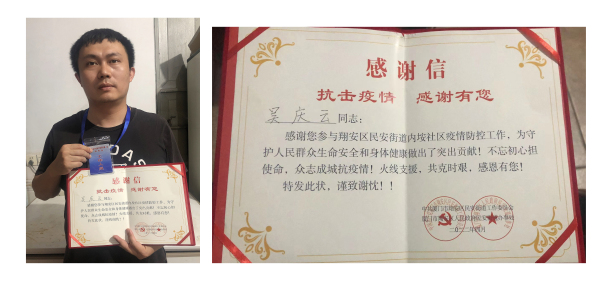 DAS
感谢信
抗击疫情 感谢有您
感谢信
抗击疫情 感谢有您
吴庆云同志:
感谢您参与翔安区民安街道内垵社区疫情防控工作,为守
护人民群众生命安全和身体健康做出了突出贡献!不忘初心担
使命,众志成城抗疫情!火线支援,共克时艰,感恩有您!
特发此状,谨致谢忱!!
二〇二二年四月